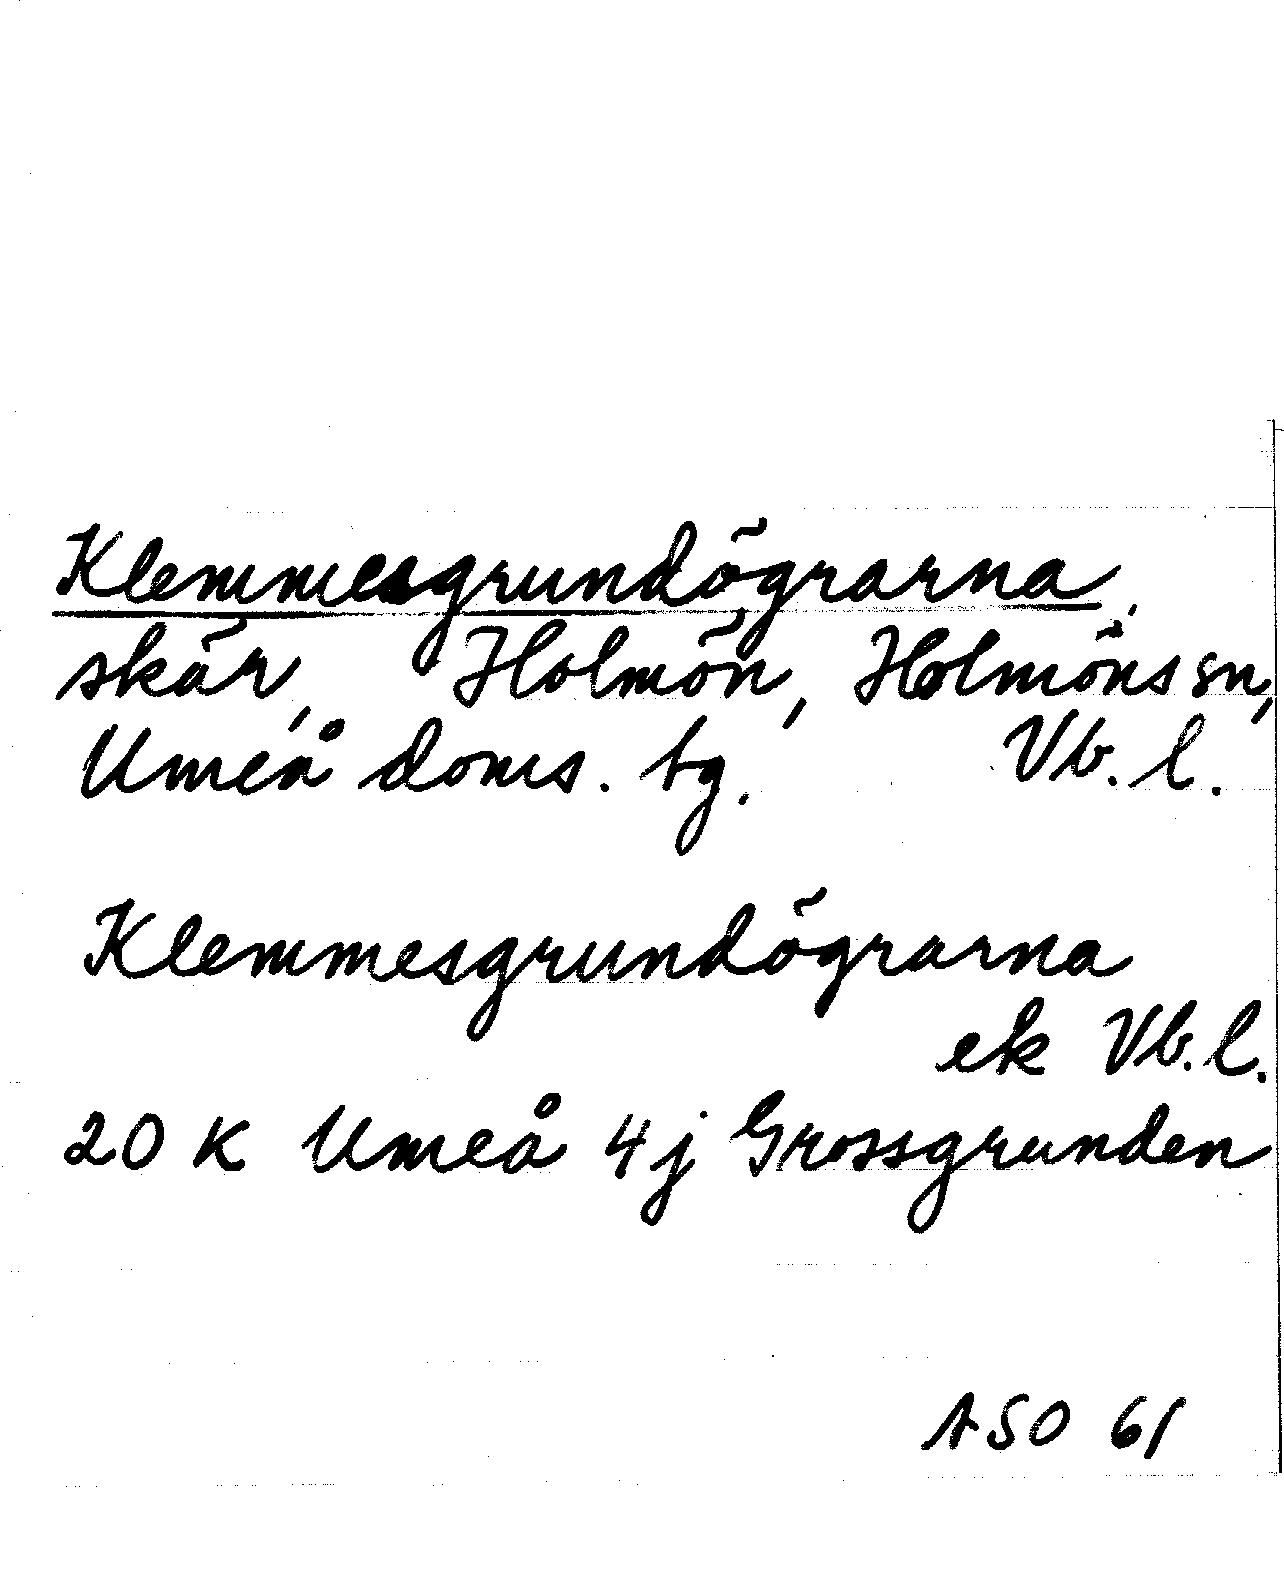 Klemmesgrundögrarna,
skär, Holmön, Holmöns sn,
Umeå doms. tg. Vb. l.
Klemmesgrundögrarna
ek Vb. l.
20 K Umeå 4j Grossgrunden
ASO 61